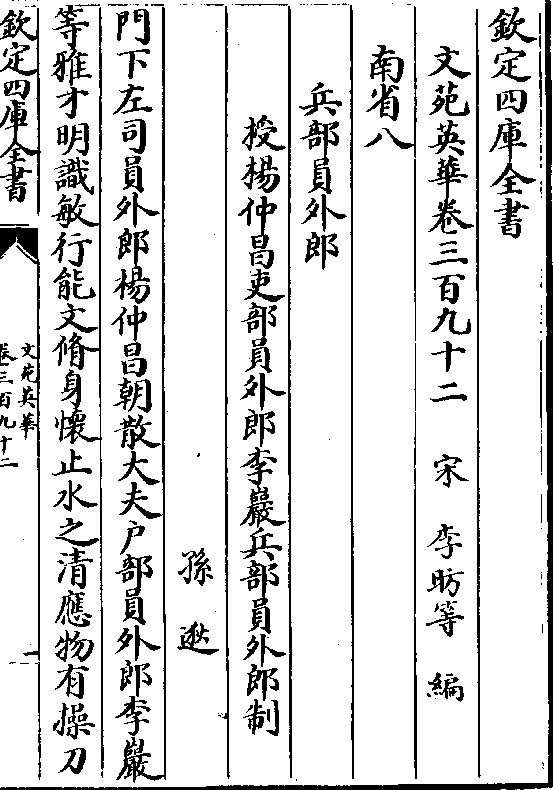 欽定四庫全書
文苑英華卷三百九十二 宋 李昉等 編
南省八
兵部員外郎
授楊仲昌吏部員外郎李巖兵部員外郎制
孫逖
門下左司員外郎楊仲昌朝散大夫户部員外郎李巖
等雅才明識敏行能文脩身懷止水之清應物有操刀
欽定四庫全書
文苑英華
卷三百九十二
一